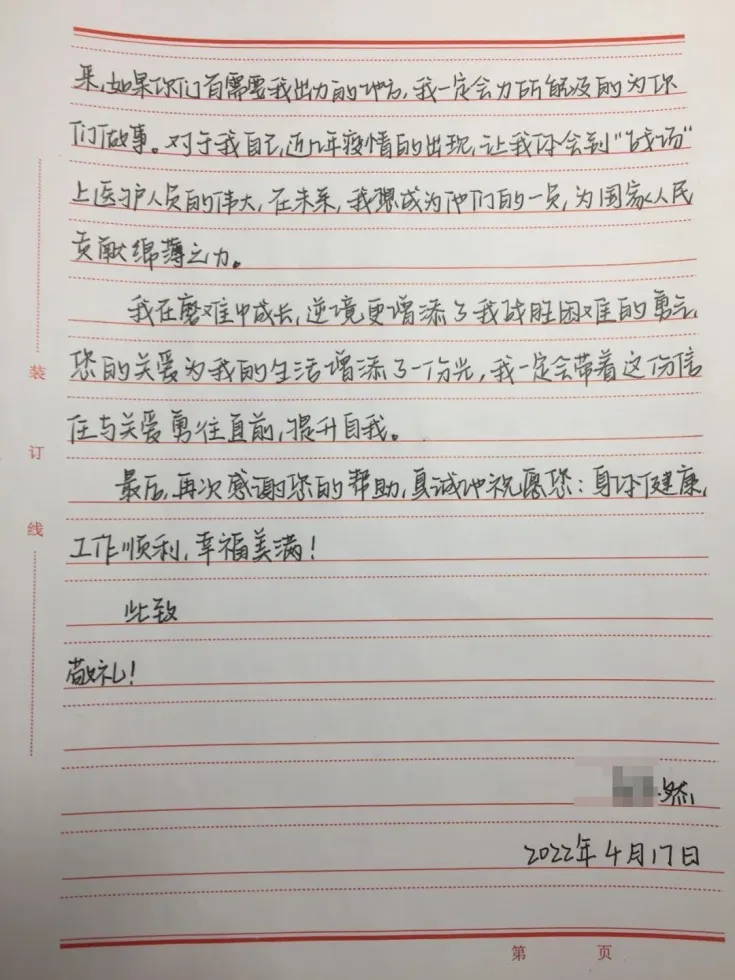 来,如果你们有需要我出力的地方,我一定会力所能及的为你
们做事。对于我自己,近几年疫情的出现,让我体会到“战场”
上医护人员的伟大,在未来,我想成为他们的一员,为国家人民
贡献绵薄之力。
我在磨难中成长,逆境更增添了我战胜困难的勇气,
您的关爱为我的生活增添了一份光,我一定会带着这份信
任与关爱勇往直前,提升自我。
最后,再次感谢您的帮助,真诚地祝愿您:身体健康,
工作顺利,幸福美满!
此致
敬礼!
然
2022年4月17日
装
订
线
第 页